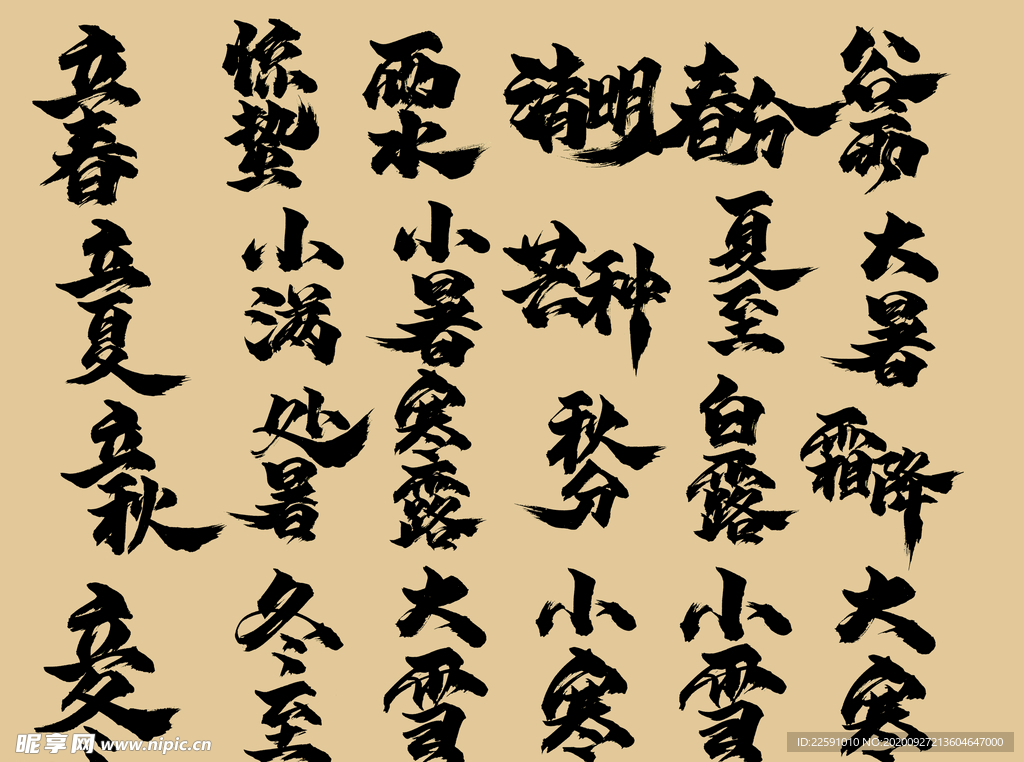 立春
惊蛰
雨水
清明
春分
谷雨
立夏
小满
小暑
芒种
夏至
大暑
立秋
处暑
寒露
秋分
白露
霜降
立冬
冬至
大雪
小寒
小雪
大寒
昵享网 www.nipic.cn
ID:22591010 NO:20200927213604647000